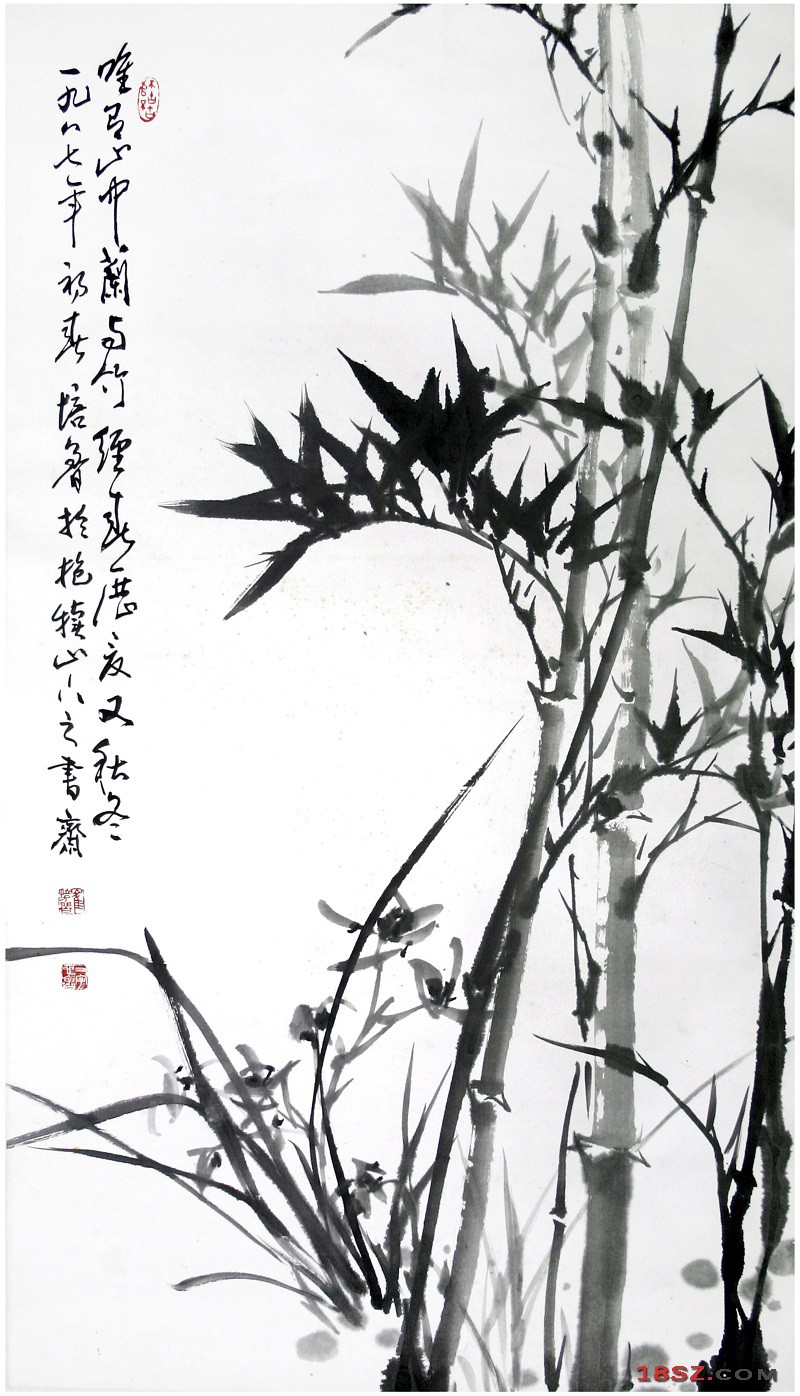 唯有山中蘭与竹經春历夏又秋冬
一九八七年初春培鲁於抱犊山下之書齋
18SZ.COM